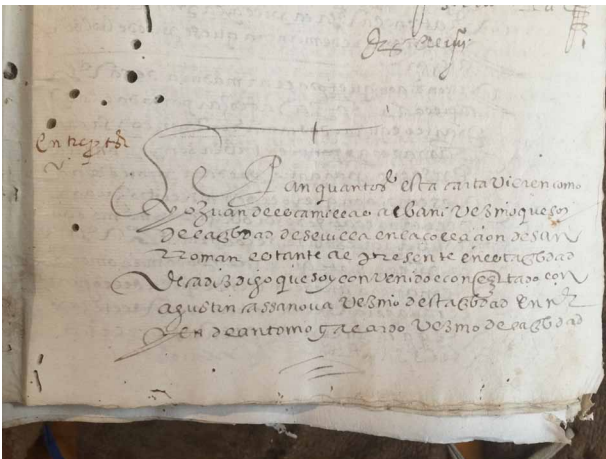 Se Pan quantos esta carta Vieren como
yo Juan de escamilla albanir Vezino que soy
de la çbdad de sevilla en la collaçion de san
Rroman estante al presente en esta çbdad
de cadiz digo que soy convenido e conçertado con
agustin cassanova Vezino desta çbdad en nR
y en de antonio gallardo Vezino de la çbdad